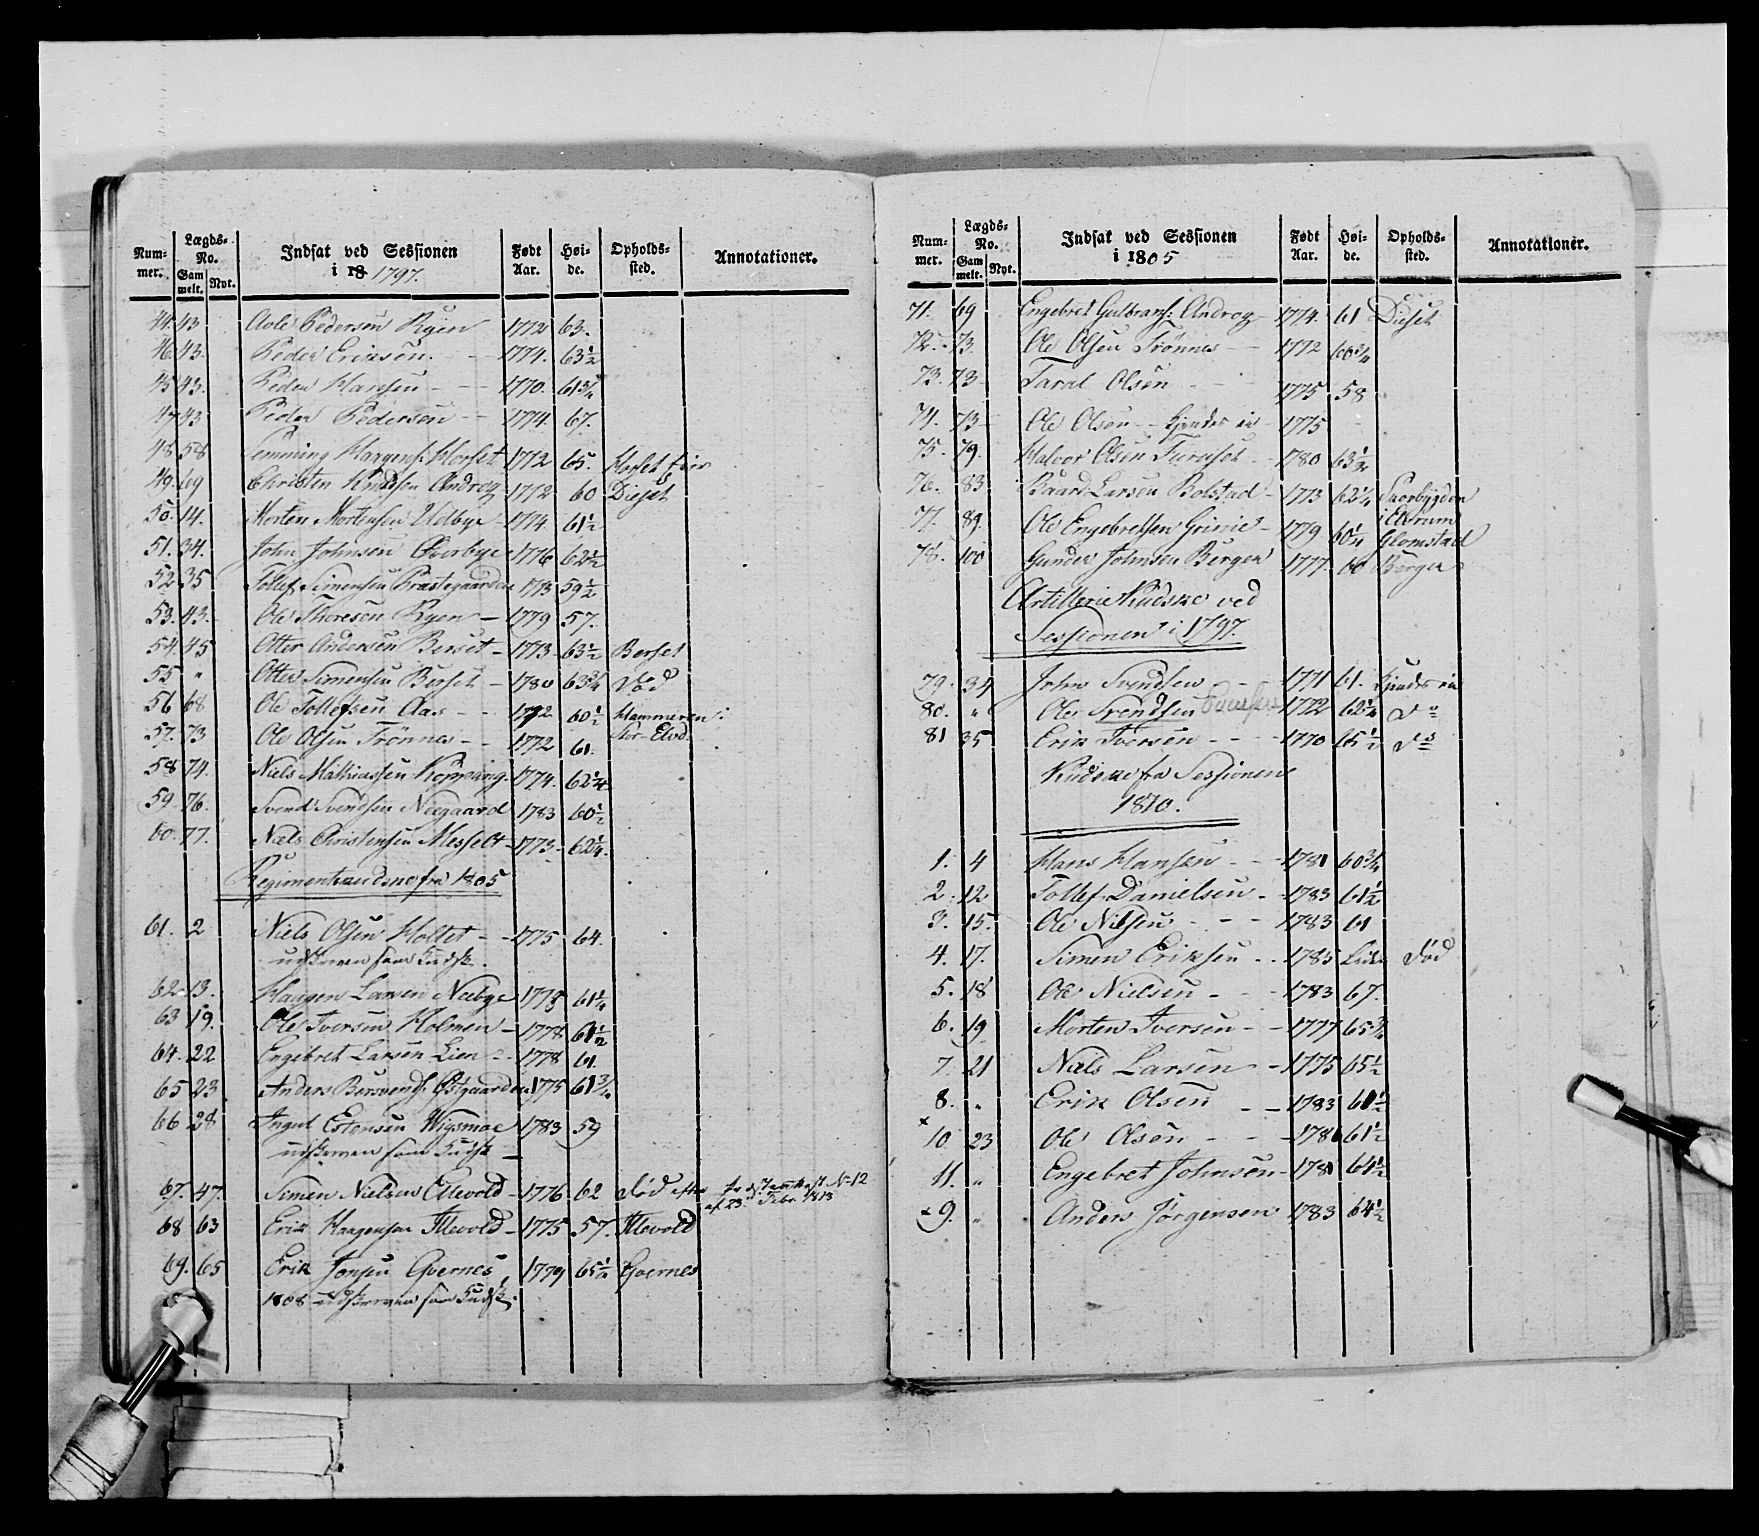 Num-
mer.
Lægds-
No.
Gam
melt.
Nyt.
Indsat ved Sessionen
i 18 1797.
Født
Aar.
Høi-
de.
Opholds-
sted.
Annotationer.
44. 43 Aole Pedersen Ryen 1772 63.
46. 43. Peder Eriksen. 1774. 63½
45 43. Peder Hansen 1770. 61¾
47 43 Peder Pedersen 1774. 67.
48. 58 Semming Haagens: Horset 1772 65. Horset
49. 69 Christen Knudsen Androg 1772 60 Dieset
50. 14. Morten Mortensen Udbye 1774 61½
51. 34. John Johnsen Øverbye 1776 62½
52 35 Tollef Simensen Præstegaarden 1773 59½
53. 43. Ole Thoresen Ryen 1779 57.
54. 45 Otter Andersen Berset 1773 63½ Berset
55 " Otter Simensen Berset 1780 63¾ Død
56 68 Ole Tollefsen Aas 1792 60½ Hammeren i
Stor-Elvd.
57. 73 Ole Olsen Trønnes 1772 61.
58 74. Niels Mathiassen Kopvang 1774. 62¼
59. 76. Svend Svendsen Neegaard 1783 60½
60. 77. Niels Christensen Messelt 1773. 62¼.
Regimentsudsne fra 1805
61. 2 Niels Olsen Holtet 1775 64.
udskreven som Kudsk.
62 13. Haagen Larsen Neebye 1775 61¼
63 19. Ole Iversen Holmen 1778 61½
64. 22 Engebret Larsen Lien 1778 61
65 23 Anders Bersvends: Østgaarden 1775 61¾
66 28 Ingul Estensen Wigsmoe 1783 59
udskreven som Kudsk
67. 47. Simen Nielsen Ellevold 1776 62 Død efter
af 23 Febr. 1813
68 63 Erik Haagensen Illevold 1775 57. Illevold
69. 65 Erik Jonsen Gvernes 1779 65½ Gvernes
1808 udskreven som Kudsk.
Num-
mer.
Lægds-
No.
Gam
melt.
Nyt.
Indsat ved Sessionen
i 1805
Født
Aar.
Høi-
de.
Opholds-
sted.
Annotationer.
71. 69 Engebret Gulbrans: Androg 1774. 61 Dieset
72. 73. Ole Olsen Trønnes 1772 60¾
73. 73 Taral Olsen 1775 58
74. 73 Ole Olsen kjendes ei 1775
75. 79. Halvor Olsen Furuset 1780 63½
76. 83 Baard Larsen Bolstad 1773 62¼ Sørbygden
i Elvrum
77. 89. Ole Engebretsen Grinie 1779 60¼ Glomstad
78. 100 Gunder Johnsen Bergen 1777. 60 Bergen
Artillerie Kudske ved
Sessionen i 1797.
79. 34 John Svendsen 1771 61. kjendes ei
80. " Ole Svendsen 1772 62¼ Do
81 35 Erik Iversen 1770 65½ Do
Kudske fra Sessionen
1810.
1. 4 Hans Hansen 1781 60¾
2. 12 Tollef Danielsen 1783 61½
3. 15. Ole Nilsen 1783 61
4. 17. Simen Eriksen 1785 Død
5. 18 Ole Nielsen 1783 67.
6. 19 Morten Iversen 1777 65¾
7. 21 Niels Larsen 1775 65½
8. " Erik Olsen 1783 61½
× 10 23 Ole Olsen 1786 61½
11. " Engebret Johnsen 1781 64½
× 9. " Anders Jørgensen 1783 64½